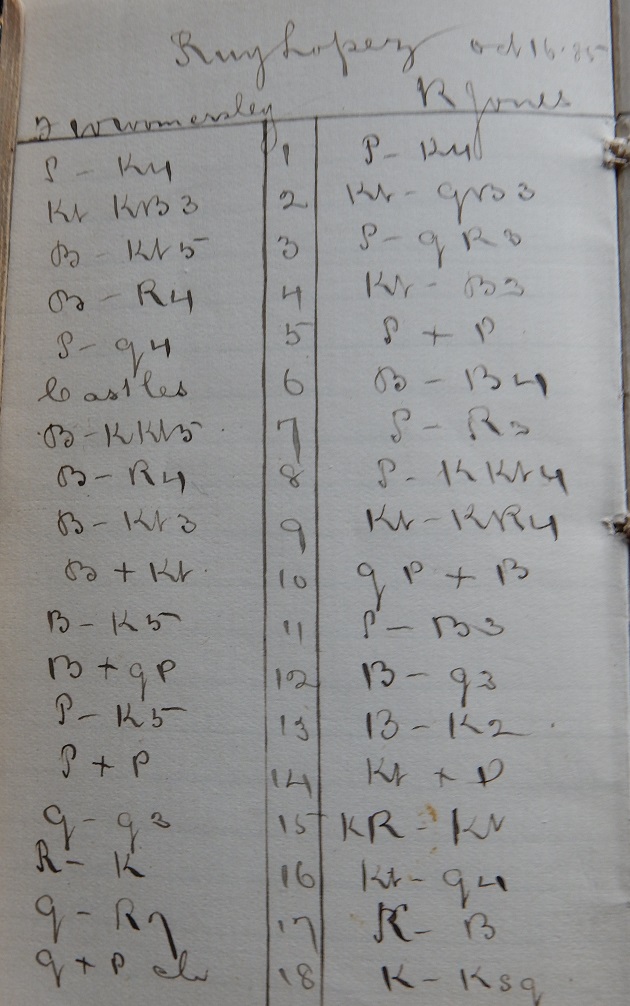 Ruy Lopez Oct 16.85
Womersley R Jones
P - K4 1 P - K4
Kt KB3 2 Kt - QB3
B - Kt5 3 P - QR3
B - R4 4 Kt - B3
P - Q4 5 P + P
Castles 6 B - B4
B - KKt5 7 P - R3
B - R4 8 P - KKt4
B - Kt3 9 Kt - KR4
B + Kt 10 QP + B
B - K5 11 P - B3
B + QP 12 B - Q3
P - K5 13 B - K2
P + P 14 Kt + P
Q - Q3 15 KR - Kt
R - K 16 Kt - Q4
Q - R7 17 K - B
Q + P ch 18 K - Ksq